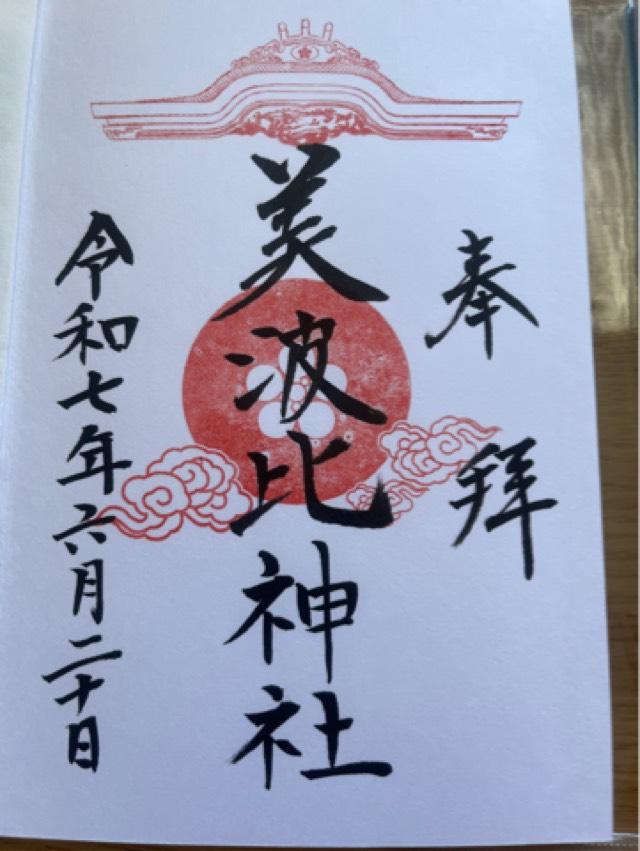 奉拝
美波比神社
令和七年六月二十日